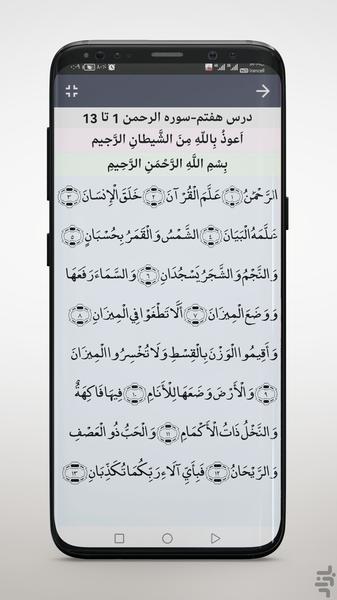 درس هفتم-سوره الرحمن 1 تا 13
اَعوذُ بِاللّهِ مِنَ الشَّيطانِ الرَّجيم
بِسْمِ اللَّهِ الرَّحْمَنِ الرَّحِيمِ
الرَّحْمَٰنُ ۝١ عَلَّمَ الْقُرْآنَ ۝٢ خَلَقَ الْإِنْسَانَ ۝٣
عَلَّمَهُ الْبَيَانَ ۝٤ الشَّمْسُ وَالْقَمَرُ بِحُسْبَانٍ ۝٥
وَالنَّجْمُ وَالشَّجَرُ يَسْجُدَانِ ۝٦ وَالسَّمَاءَ رَفَعَهَا
وَوَضَعَ الْمِيزَانَ ۝٧ أَلَّا تَطْغَوْا فِي الْمِيزَانِ ۝٨
وَأَقِيمُوا الْوَزْنَ بِالْقِسْطِ وَلَا تُخْسِرُوا الْمِيزَانَ
۝٩ وَالْأَرْضَ وَضَعَهَا لِلْأَنَامِ ۝١٠ فِيهَا فَاكِهَةٌ
وَالنَّخْلُ ذَاتُ الْأَكْمَامِ ۝١١ وَالْحَبُّ ذُو الْعَصْفِ
وَالرَّيْحَانُ ۝١٢ فَبِأَيِّ آلَاءِ رَبِّكُمَا تُكَذِّبَانِ ۝١٣